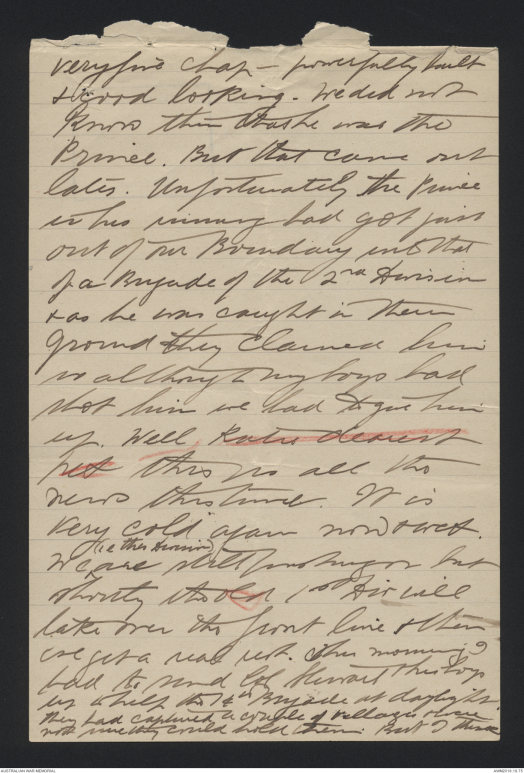 very fine chap – powerfully built
& good looking. We did not
know then that he was the
Prince. But that came out
later. Unfortunately the Prince
in his running had got just
out of our Boundary into that
of a Brigade of the 2nd Division
& as he was caught in their
ground they claimed him
so although my boys had
shot him we had to give him
up. Well Katie dearest
pet this is all the
news this time. It is
very cold again now & wet.
(ie this Division)
We are still pushing on but
shortly the old 1st Div will
take over the front line & then
we get a real rest. This morning I
had to send Col Stewart & his boys
up to help the 14th Brigade at daylight.
they had captured a couple of villages
not sure they could hold them. But I think
AUSTRALIAN WAR MEMORIAL
AWM2018.19.73